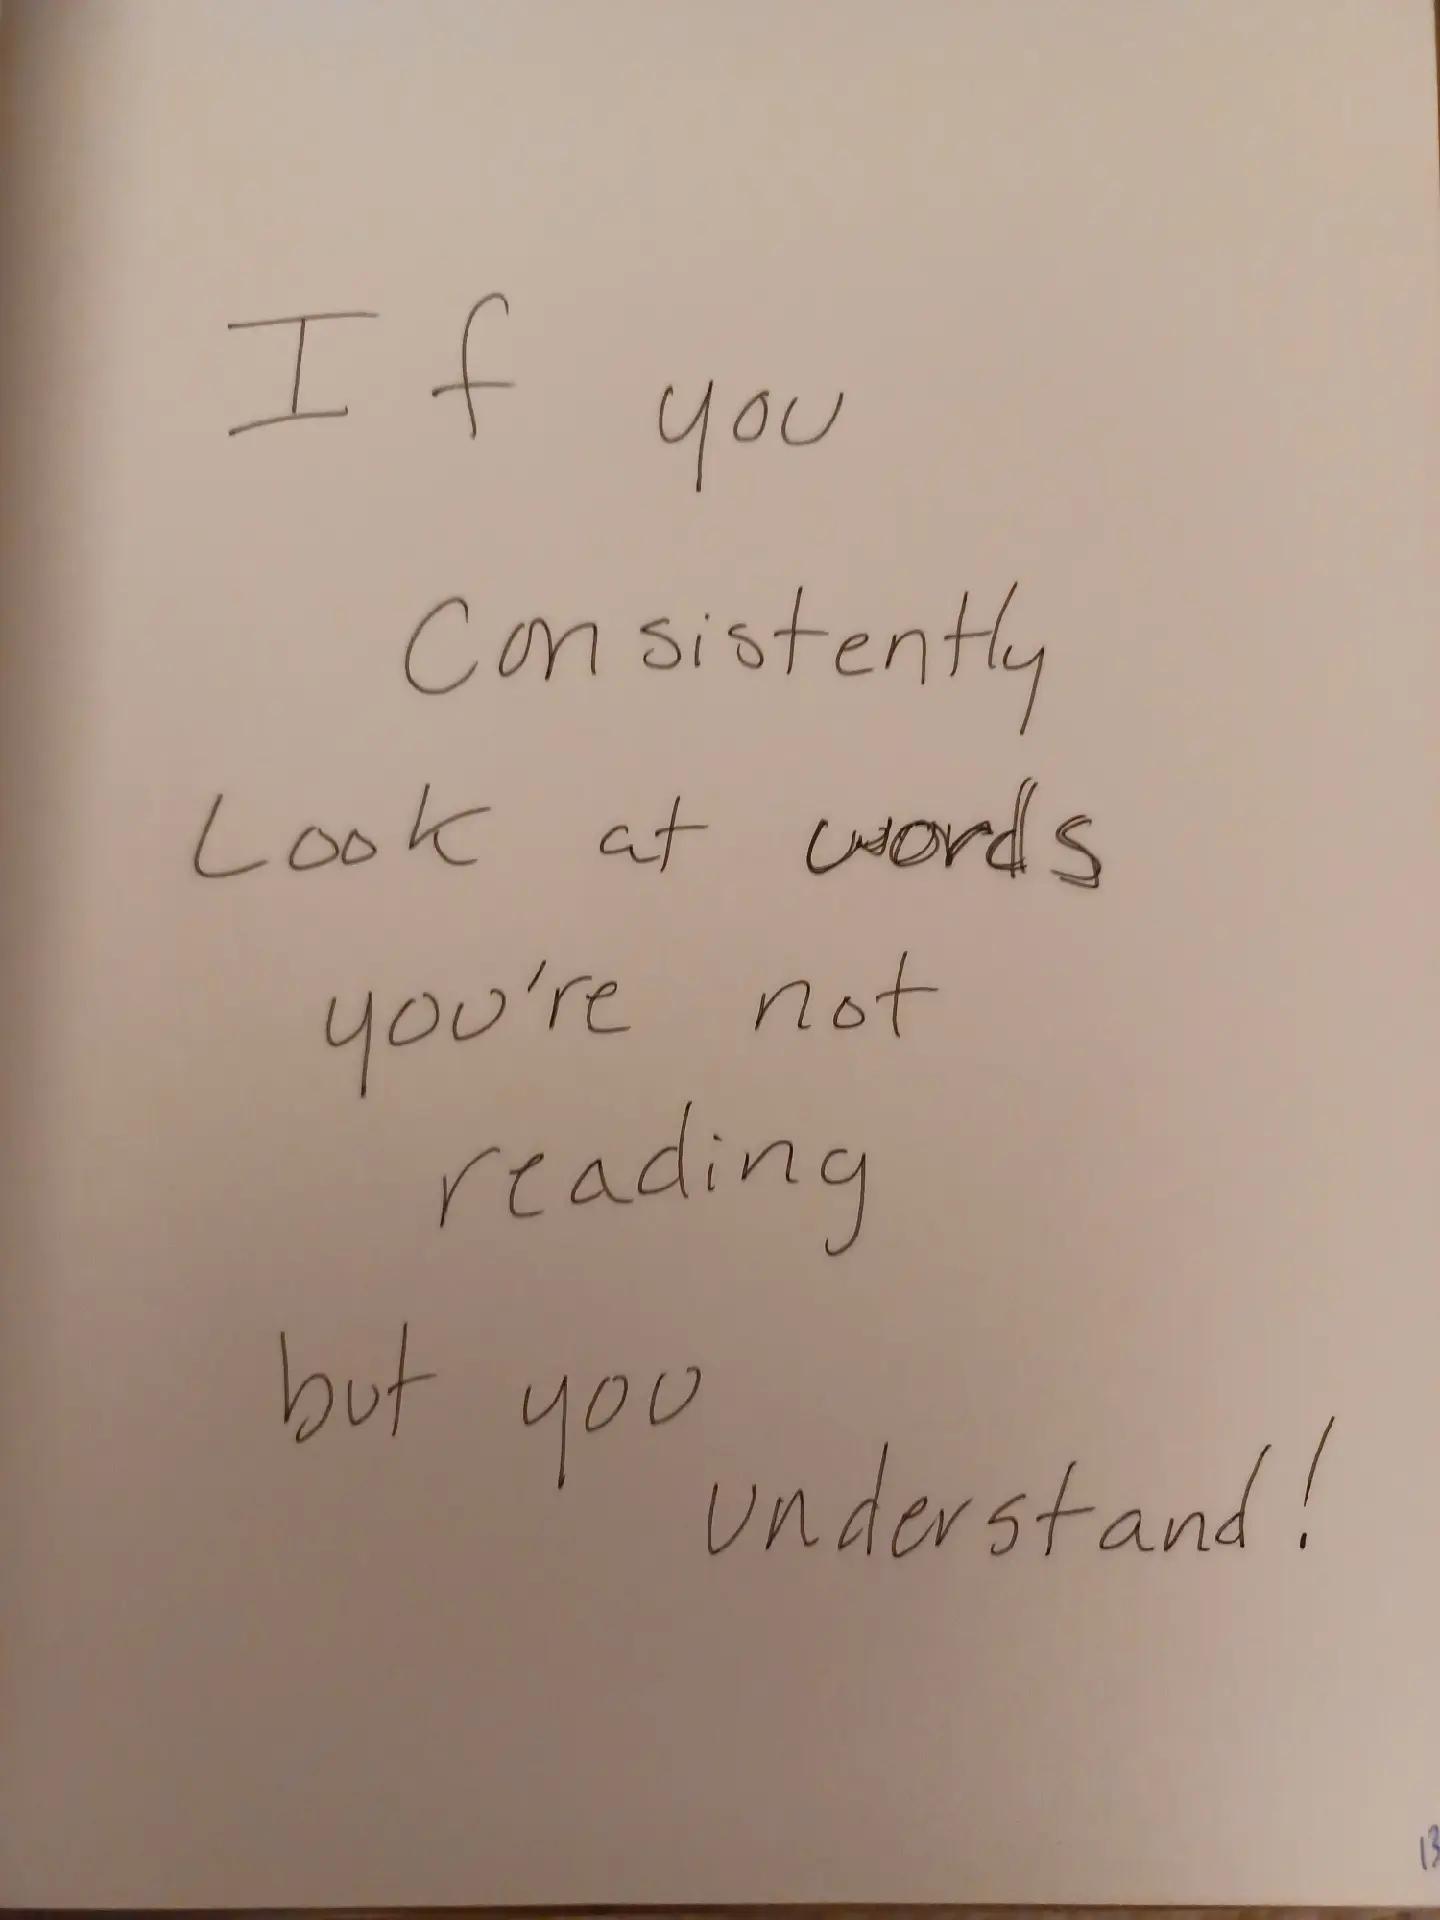 If you
Consistently
Look at words
you're not
reading
but you
understand!
13